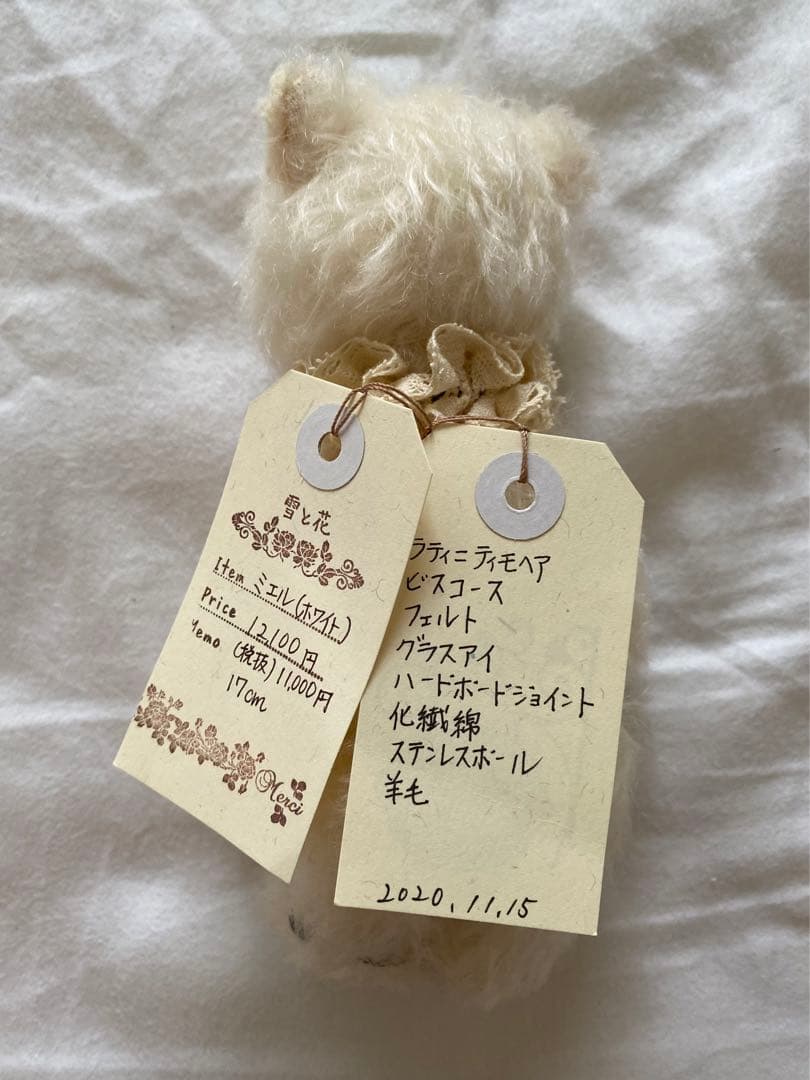 雪と花
Item ミエル(ホワイト)
Price 12,100円
Memo (税抜)11,000円
17cm
Merci
ラティニティモヘア
ビスコース
フェルト
グラスアイ
ハードボードジョイント
化繊綿
ステンレスボール
羊毛
2020.11.15